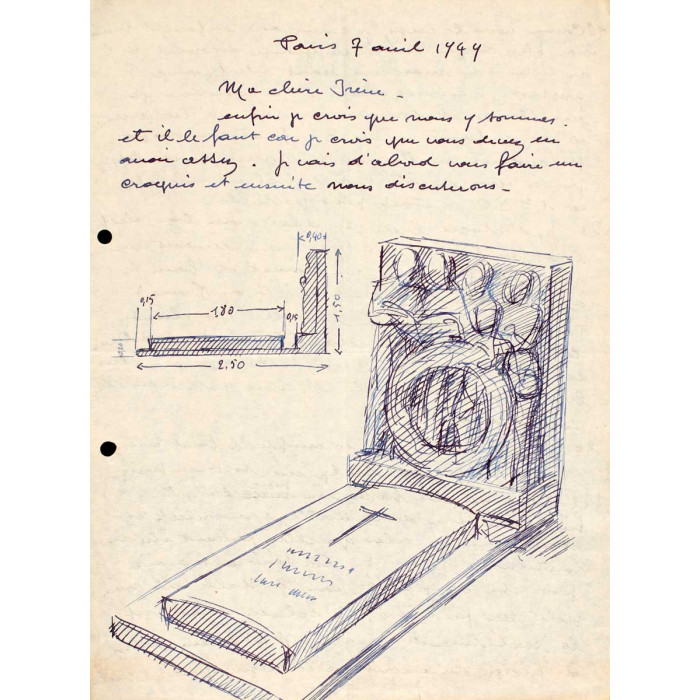 Paris 7 avril 1949
Ma chère Irène -
enfin je crois que nous y sommes.
et il le faut car je crois que vous devez en
avoir assez. Je vais d'abord vous faire un
croquis et ensuite nous discuterons -
0,40
0,15
1,80
0,15
1,50
2,50